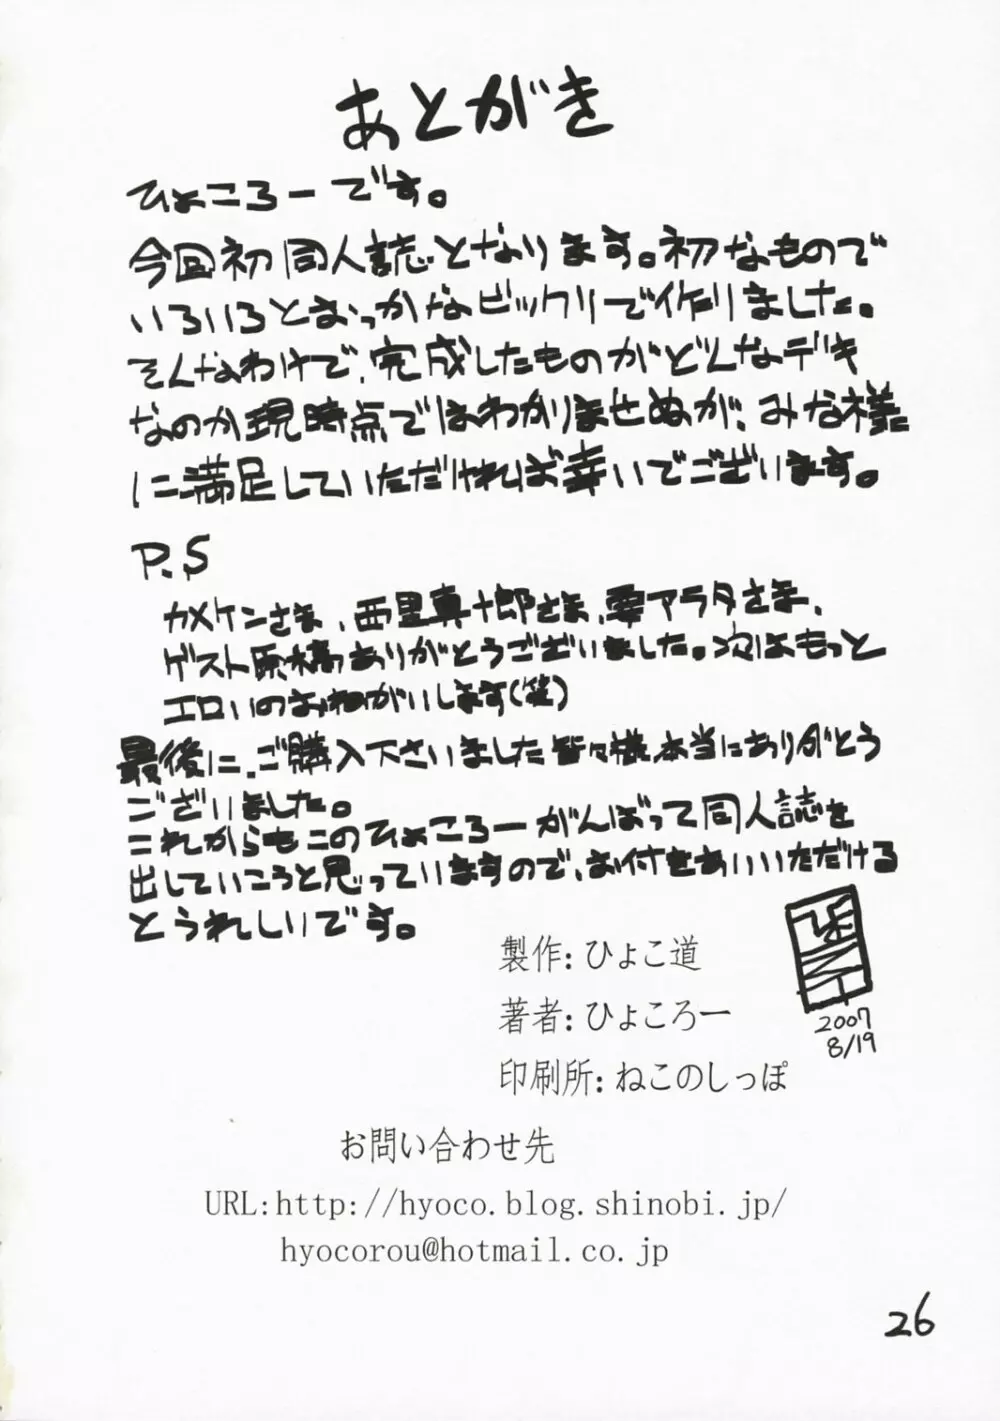 あとがき
ひょころーです。
今回初同人誌となります。初なもので
いろいろとおっかなビックリで作りました。
そんなわけで、完成したものがどんなデキ
なのか現時点ではわかりませぬが、みな様
に満足していただければ幸いでございます。
P.S
カメケンさま、西里真十郎さま、雫アラタさま、
ゲスト原稿ありがとうございました。次はもっと
エロいのおねがいします(笑)
最後に、ご購入下さいました皆々様、本当にありがとう
ございました。
これからもこのひょころーがんばって同人誌を
出していこうと思っていますので、お付きあいいただける
とうれしいです。
製作:ひょこ道
著者:ひょころー
2007
8/19
印刷所:ねこのしっぽ
お問い合わせ先
URL:http://hyoco.blog.shinobi.jp/
hyocorou@hotmail.co.jp
26